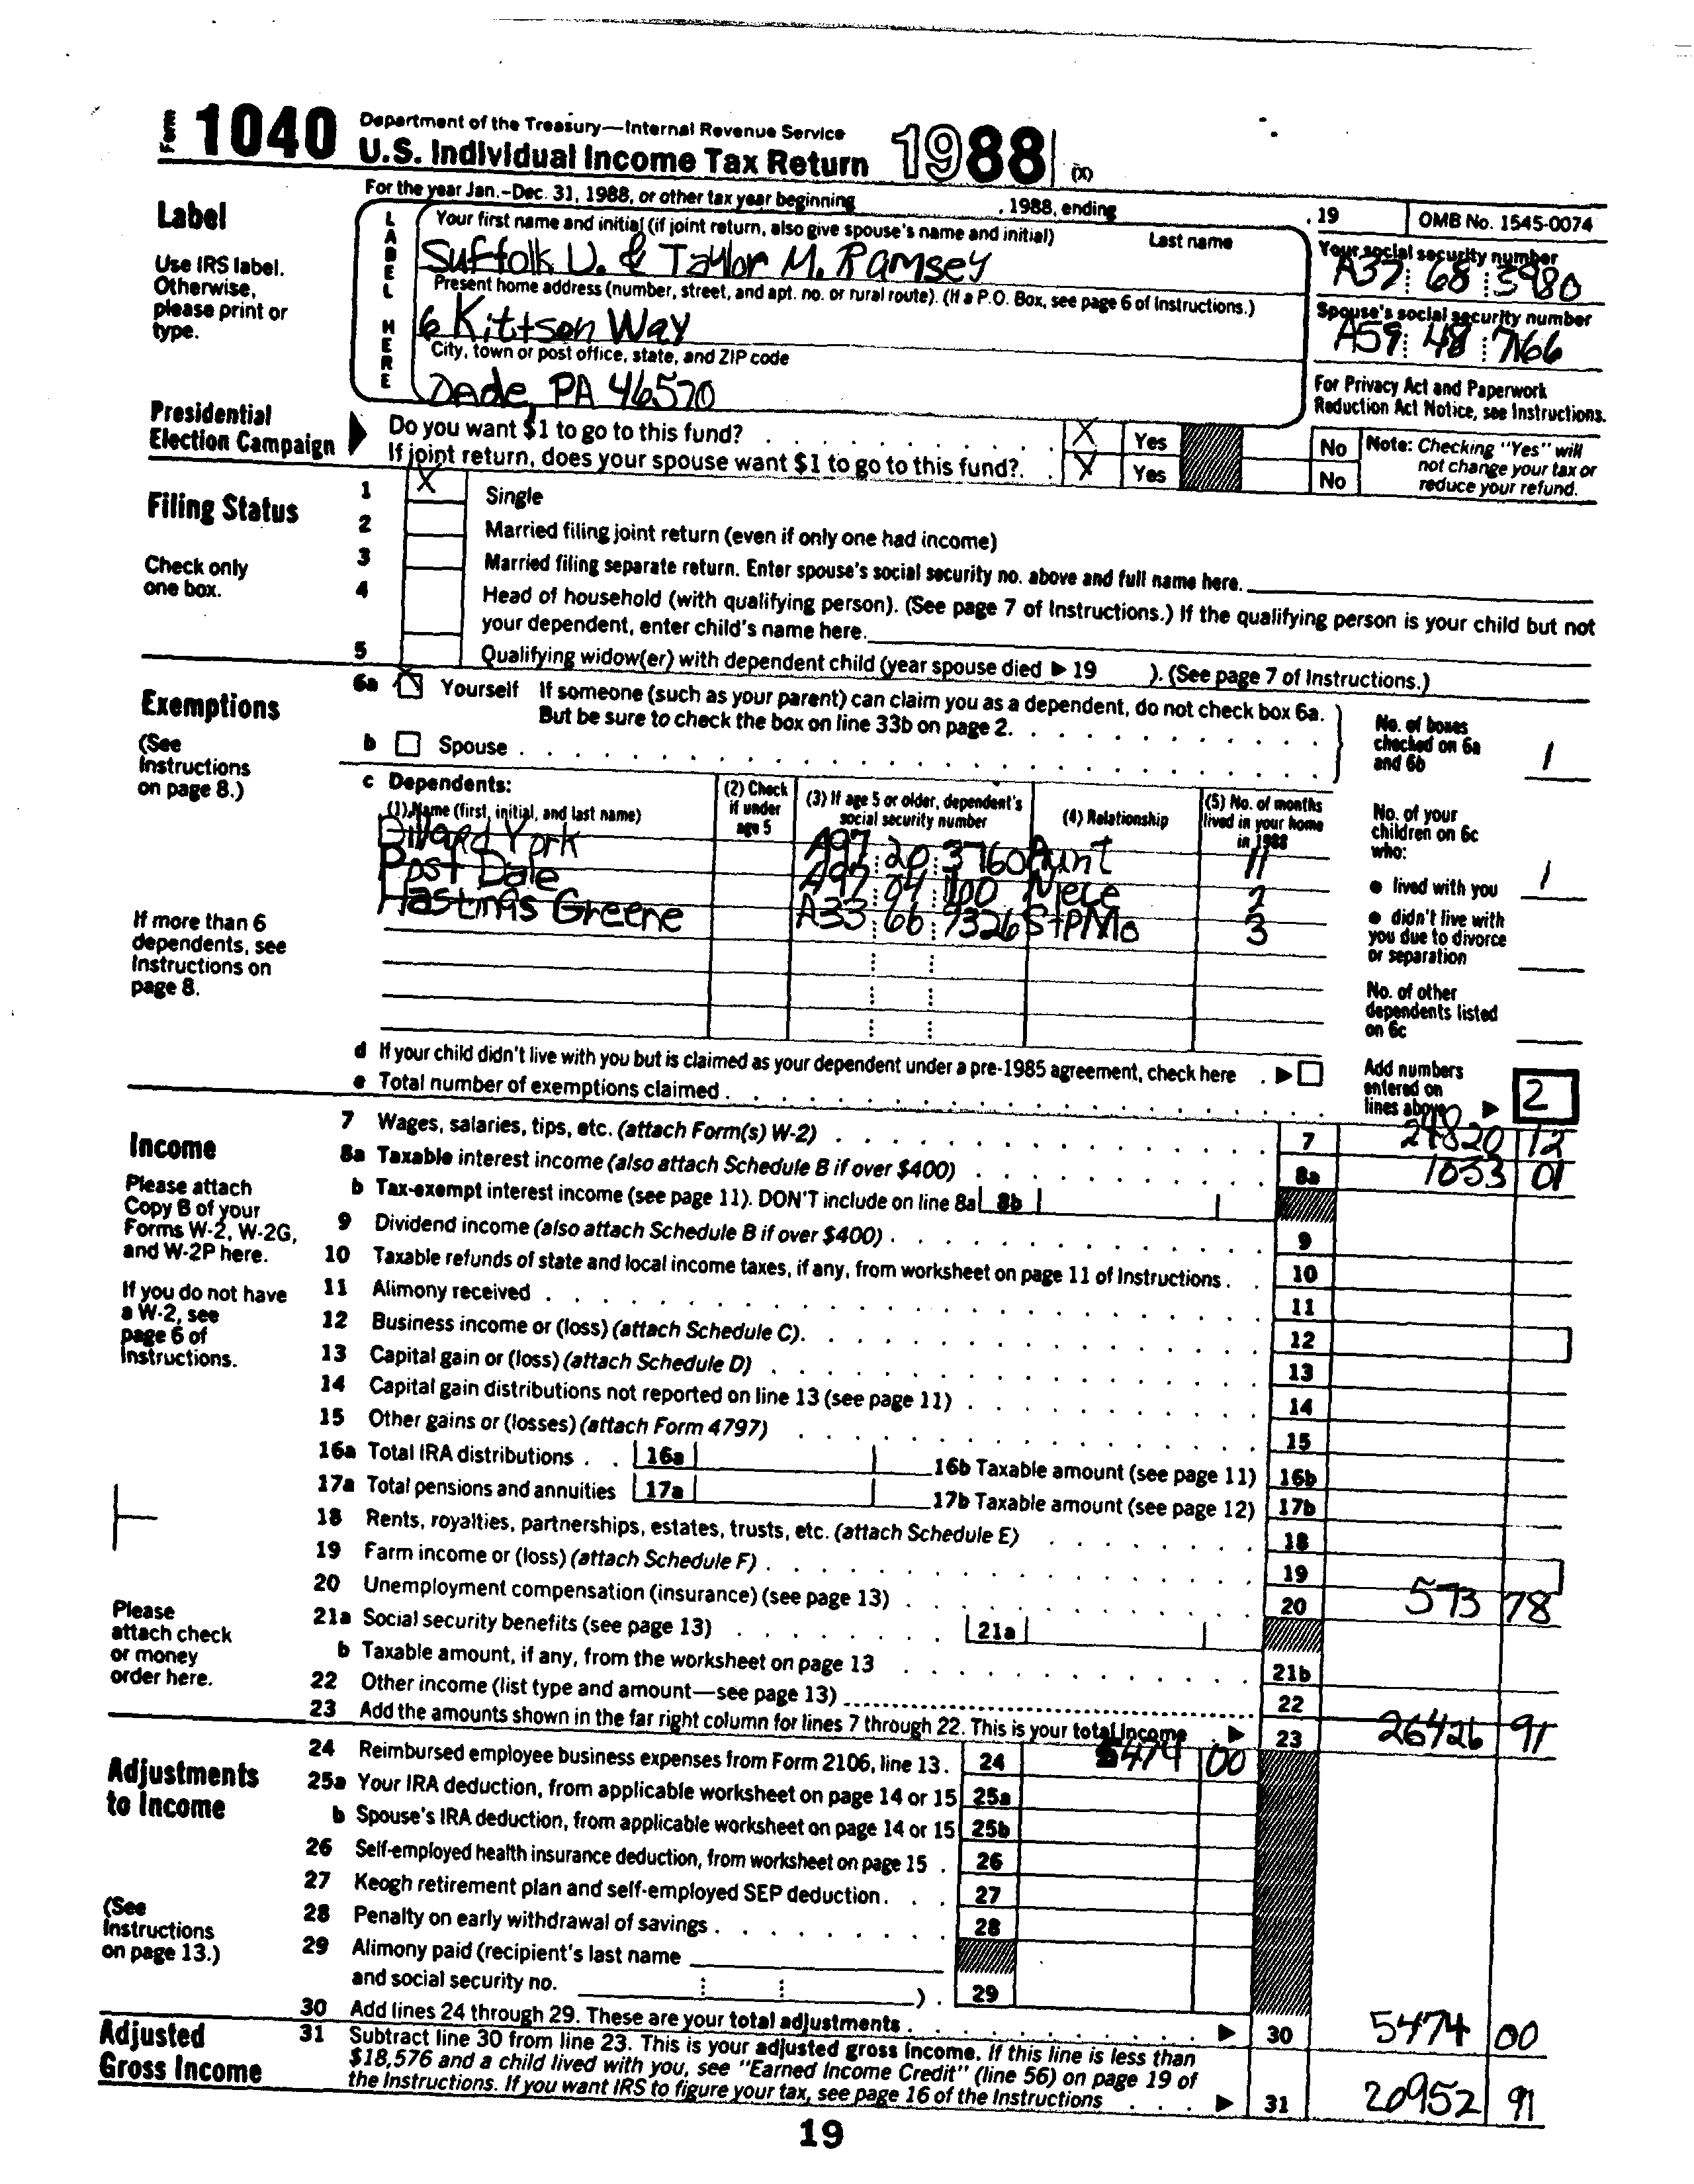 Form 1040 Department of the Treasury—Internal Revenue Service
U.S. Individual Income Tax Return 1988 (X)
For the year Jan.–Dec. 31, 1988, or other tax year beginning , 1988, ending , 19 OMB No. 1545-0074
Label
Use IRS label.
Otherwise,
please print or
type.
LABEL HERE
Your first name and initial (if joint return, also give spouse's name and initial) Last name
Suffolk U. & Taylor M. Ramsey
Your social security number
A37 68 3980
Present home address (number, street, and apt. no. or rural route). (If a P.O. Box, see page 6 of Instructions.)
6 Kittson Way
Spouse's social security number
A59 48 7166
City, town or post office, state, and ZIP code
Dade, PA 46570
For Privacy Act and Paperwork
Reduction Act Notice, see Instructions.
Presidential
Election Campaign
Do you want $1 to go to this fund? X Yes No
If joint return, does your spouse want $1 to go to this fund? X Yes No
Note: Checking "Yes" will
not change your tax or
reduce your refund.
Filing Status
Check only
one box.
1 X Single
2 Married filing joint return (even if only one had income)
3 Married filing separate return. Enter spouse's social security no. above and full name here.
4 Head of household (with qualifying person). (See page 7 of Instructions.) If the qualifying person is your child but not
your dependent, enter child's name here.
5 Qualifying widow(er) with dependent child (year spouse died ▶ 19 ). (See page 7 of Instructions.)
Exemptions
(See
Instructions
on page 8.)
6a X Yourself If someone (such as your parent) can claim you as a dependent, do not check box 6a.
But be sure to check the box on line 33b on page 2.
b Spouse
No. of boxes
checked on 6a
and 6b 1
c Dependents:
(1) Name (first, initial, and last name)
(2) Check
if under
age 5
(3) If age 5 or older, dependent's
social security number
(4) Relationship
(5) No. of months
lived in your home
in 1988
Dillard York A97 20 3760 Aunt 11
Post Dale A97 04 Niece 2
Hastings Greene A33 66 9326 StPMo 3
If more than 6
dependents, see
Instructions on
page 8.
No. of your
children on 6c
who:
● lived with you 1
● didn't live with
you due to divorce
or separation
No. of other
dependents listed
on 6c
d If your child didn't live with you but is claimed as your dependent under a pre-1985 agreement, check here ▶
e Total number of exemptions claimed
Add numbers
entered on
lines above ▶ 2
Income
Please attach
Copy B of your
Forms W-2, W-2G,
and W-2P here.
If you do not have
a W-2, see
page 6 of
Instructions.
Please
attach check
or money
order here.
7 Wages, salaries, tips, etc. (attach Form(s) W-2) 7 24820 12
8a Taxable interest income (also attach Schedule B if over $400) 8a 1033 01
b Tax-exempt interest income (see page 11). DON'T include on line 8a 8b
9 Dividend income (also attach Schedule B if over $400) 9
10 Taxable refunds of state and local income taxes, if any, from worksheet on page 11 of Instructions 10
11 Alimony received 11
12 Business income or (loss) (attach Schedule C) 12
13 Capital gain or (loss) (attach Schedule D) 13
14 Capital gain distributions not reported on line 13 (see page 11) 14
15 Other gains or (losses) (attach Form 4797) 15
16a Total IRA distributions 16a 16b Taxable amount (see page 11) 16b
17a Total pensions and annuities 17a 17b Taxable amount (see page 12) 17b
18 Rents, royalties, partnerships, estates, trusts, etc. (attach Schedule E) 18
19 Farm income or (loss) (attach Schedule F) 19
20 Unemployment compensation (insurance) (see page 13) 20 573 78
21a Social security benefits (see page 13) 21a
b Taxable amount, if any, from the worksheet on page 13 21b
22 Other income (list type and amount—see page 13) 22
23 Add the amounts shown in the far right column for lines 7 through 22. This is your total income ▶ 23 26426 91
Adjustments
to Income
(See
Instructions
on page 13.)
24 Reimbursed employee business expenses from Form 2106, line 13. 24 5474 00
25a Your IRA deduction, from applicable worksheet on page 14 or 15 25a
b Spouse's IRA deduction, from applicable worksheet on page 14 or 15 25b
26 Self-employed health insurance deduction, from worksheet on page 15 26
27 Keogh retirement plan and self-employed SEP deduction 27
28 Penalty on early withdrawal of savings 28
29 Alimony paid (recipient's last name
and social security no. ) 29
30 Add lines 24 through 29. These are your total adjustments ▶ 30 5474 00
Adjusted
Gross Income
31 Subtract line 30 from line 23. This is your adjusted gross income. If this line is less than
$18,576 and a child lived with you, see "Earned Income Credit" (line 56) on page 19 of
the Instructions. If you want IRS to figure your tax, see page 16 of the Instructions ▶ 31 20952 91
19